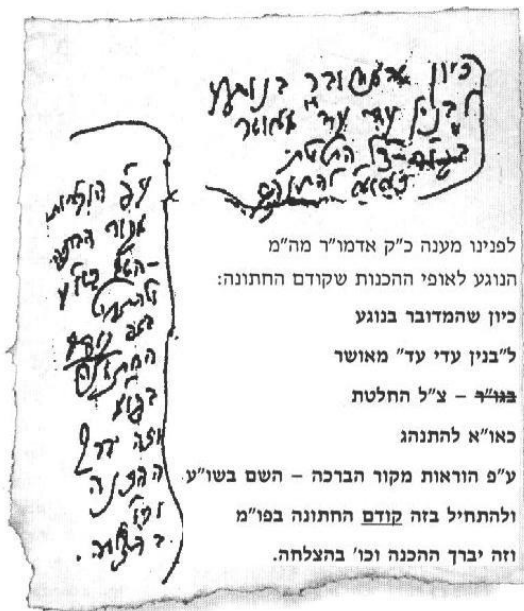 כיון שהמדובר בנוגע
ל"בנין עדי עד" מאושר
בגו"ר – צ"ל החלטת
כאו"א להתנהג
ע"פ הוראות
מקור הברכה
– השם בשו"ע
ולהתחיל
בזה קודם
החתונה
בפו"מ
וזה יברך
ההכנה
וכו'
בהצלחה.
לפנינו מענה כ"ק אדמו"ר מה"מ
הנוגע לאופי ההכנות שקודם החתונה:
כיון שהמדובר בנוגע
ל"בנין עדי עד" מאושר
בגו"ר – צ"ל החלטת
כאו"א להתנהג
ע"פ הוראות מקור הברכה – השם בשו"ע
ולהתחיל בזה קודם החתונה בפו"מ
וזה יברך ההכנה וכו' בהצלחה.